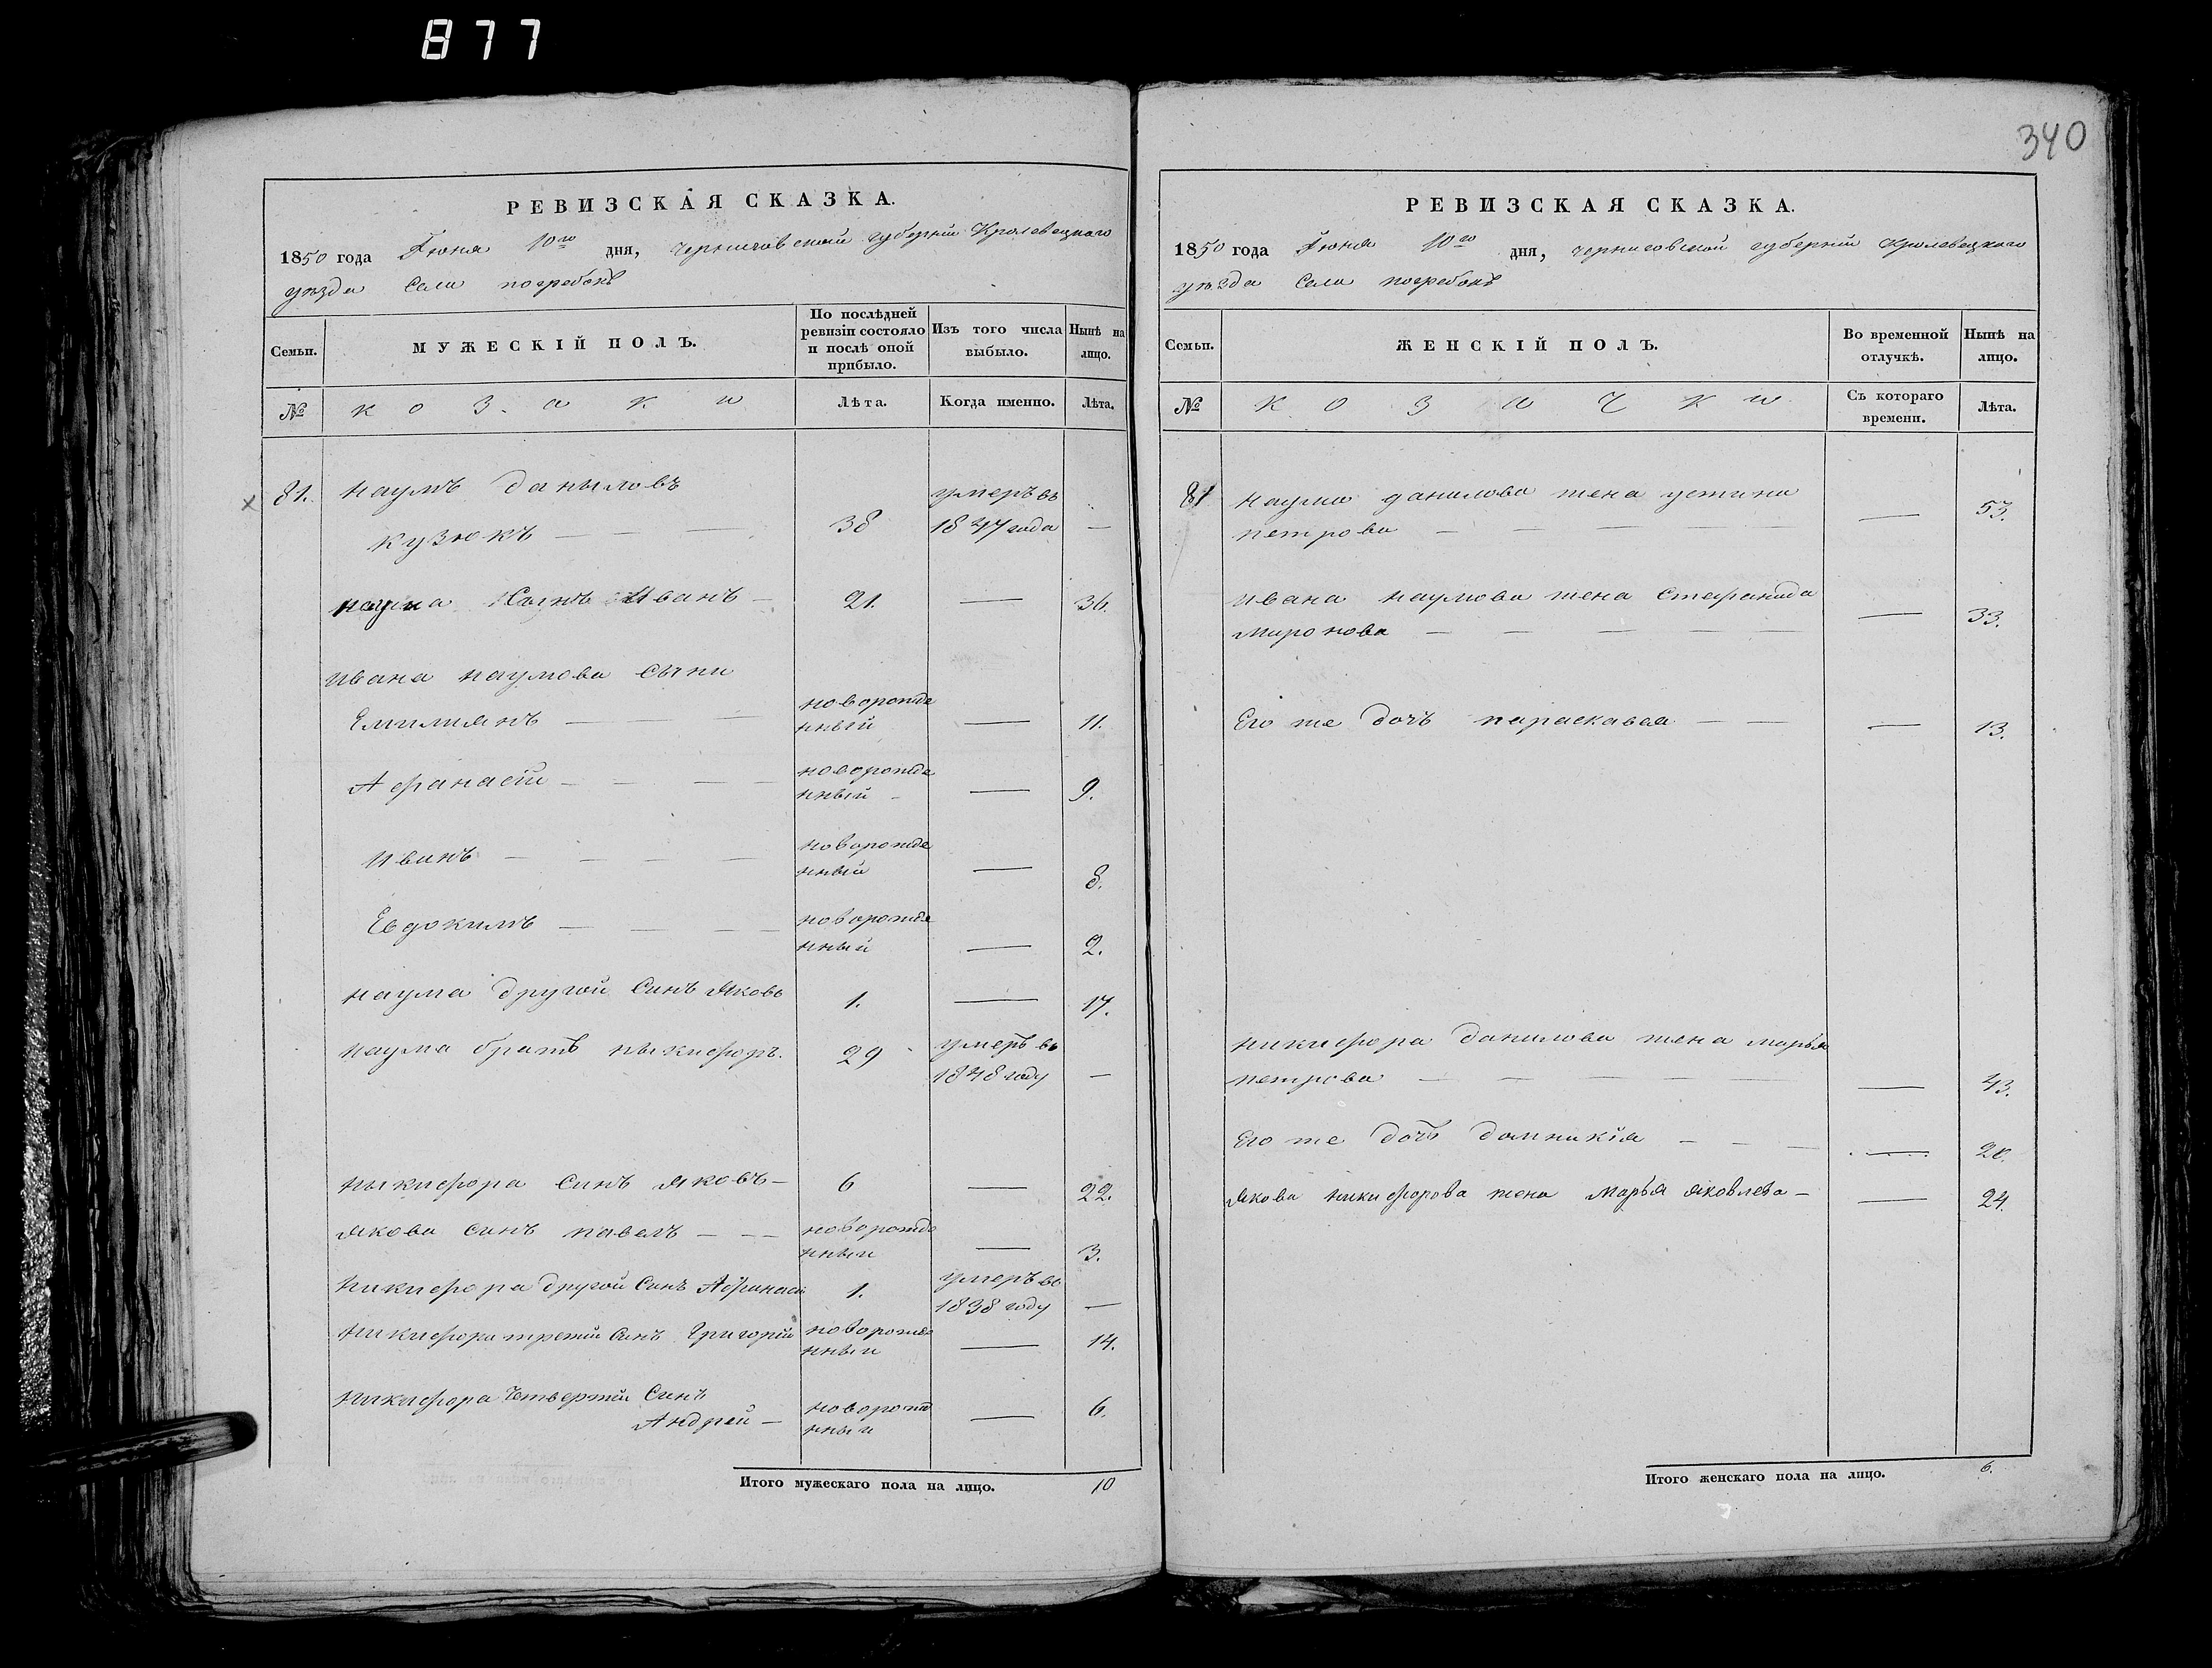 877
340
РЕВИЗСКАЯ СКАЗКА.
1850 года Іюня 10го дня, черниговской губерніи Кролевецкаго
уѣзда Села погребокъ
Семьи.
МУЖЕСКІЙ ПОЛЪ.
По послѣдней
ревизіи состояло
и послѣ оной
прибыло.
Изъ того числа
выбыло.
Нынѣ на
лицо.
№
козаки
Лѣта.
Когда именно.
Лѣта.
81. наумъ даныловъ умеръ въ
кузюкъ — — — 38 1847 года —
наума Сынъ Иванъ — 21. — 36.
ивана наумова сыни
Емилиянъ — — новорожде
нный — 11.
Афанасій — — — — новорожде
нный — — 9.
иванъ — — — — новорожде
нный — 8.
Евдокимъ — — — — новорожде
нный — 2.
наума другой Синъ яковъ 1. — 17.
наума братъ ныкифоръ. 29 умеръ въ
1848 году —
ныкифора Синъ яковъ — 6 — 22.
якова синъ павелъ — — — новорожде
нный — 3.
никифора другой Синъ Афанасій 1. умеръ въ
1838 году —
никифора третій Синъ Григорій новорожде
нный — 14.
никифора Четвертій Синъ
Андрей — новорожд
нный — 6.
Итого мужескаго пола на лицо. 10
РЕВИЗСКАЯ СКАЗКА.
1850 года Іюня 10го дня, черниговской губерніи Кролевецкаго
уѣзда Села погребокъ
Семьи.
ЖЕНСКІЙ ПОЛЪ.
Во временной
отлучкѣ.
Нынѣ на
лицо.
№
козачки
Съ котораго
времени.
Лѣта.
81 наума данилова жена устина
петрова — — — — — 53.
ивана наумова жена Стефанида
Миронова — — — — — — 33.
Его же дочь параскавея — — — 13.
никифора данилова жена марья
петрова — — — — — — 43.
Его же дочь домникія — — — — 20.
якова никифорова жена Марья яковлева — — 24.
Итого женскаго пола на лицо. 6.